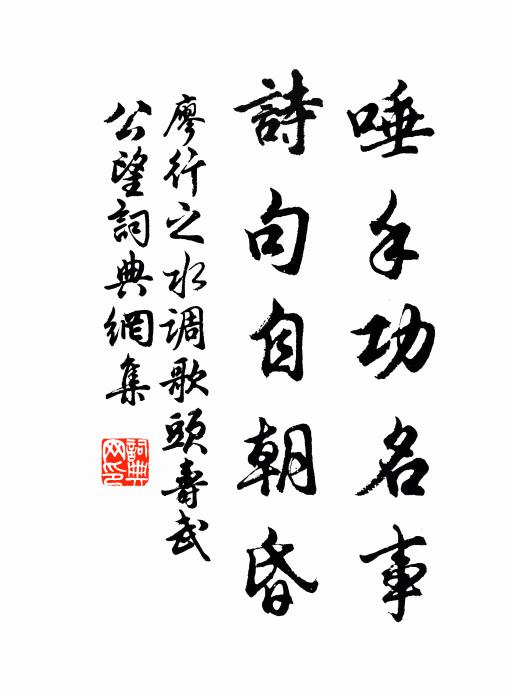 唾手功名事
詩句自朝昏
廖行之水调歌頭壽武
公望詞典網集
詞典网印